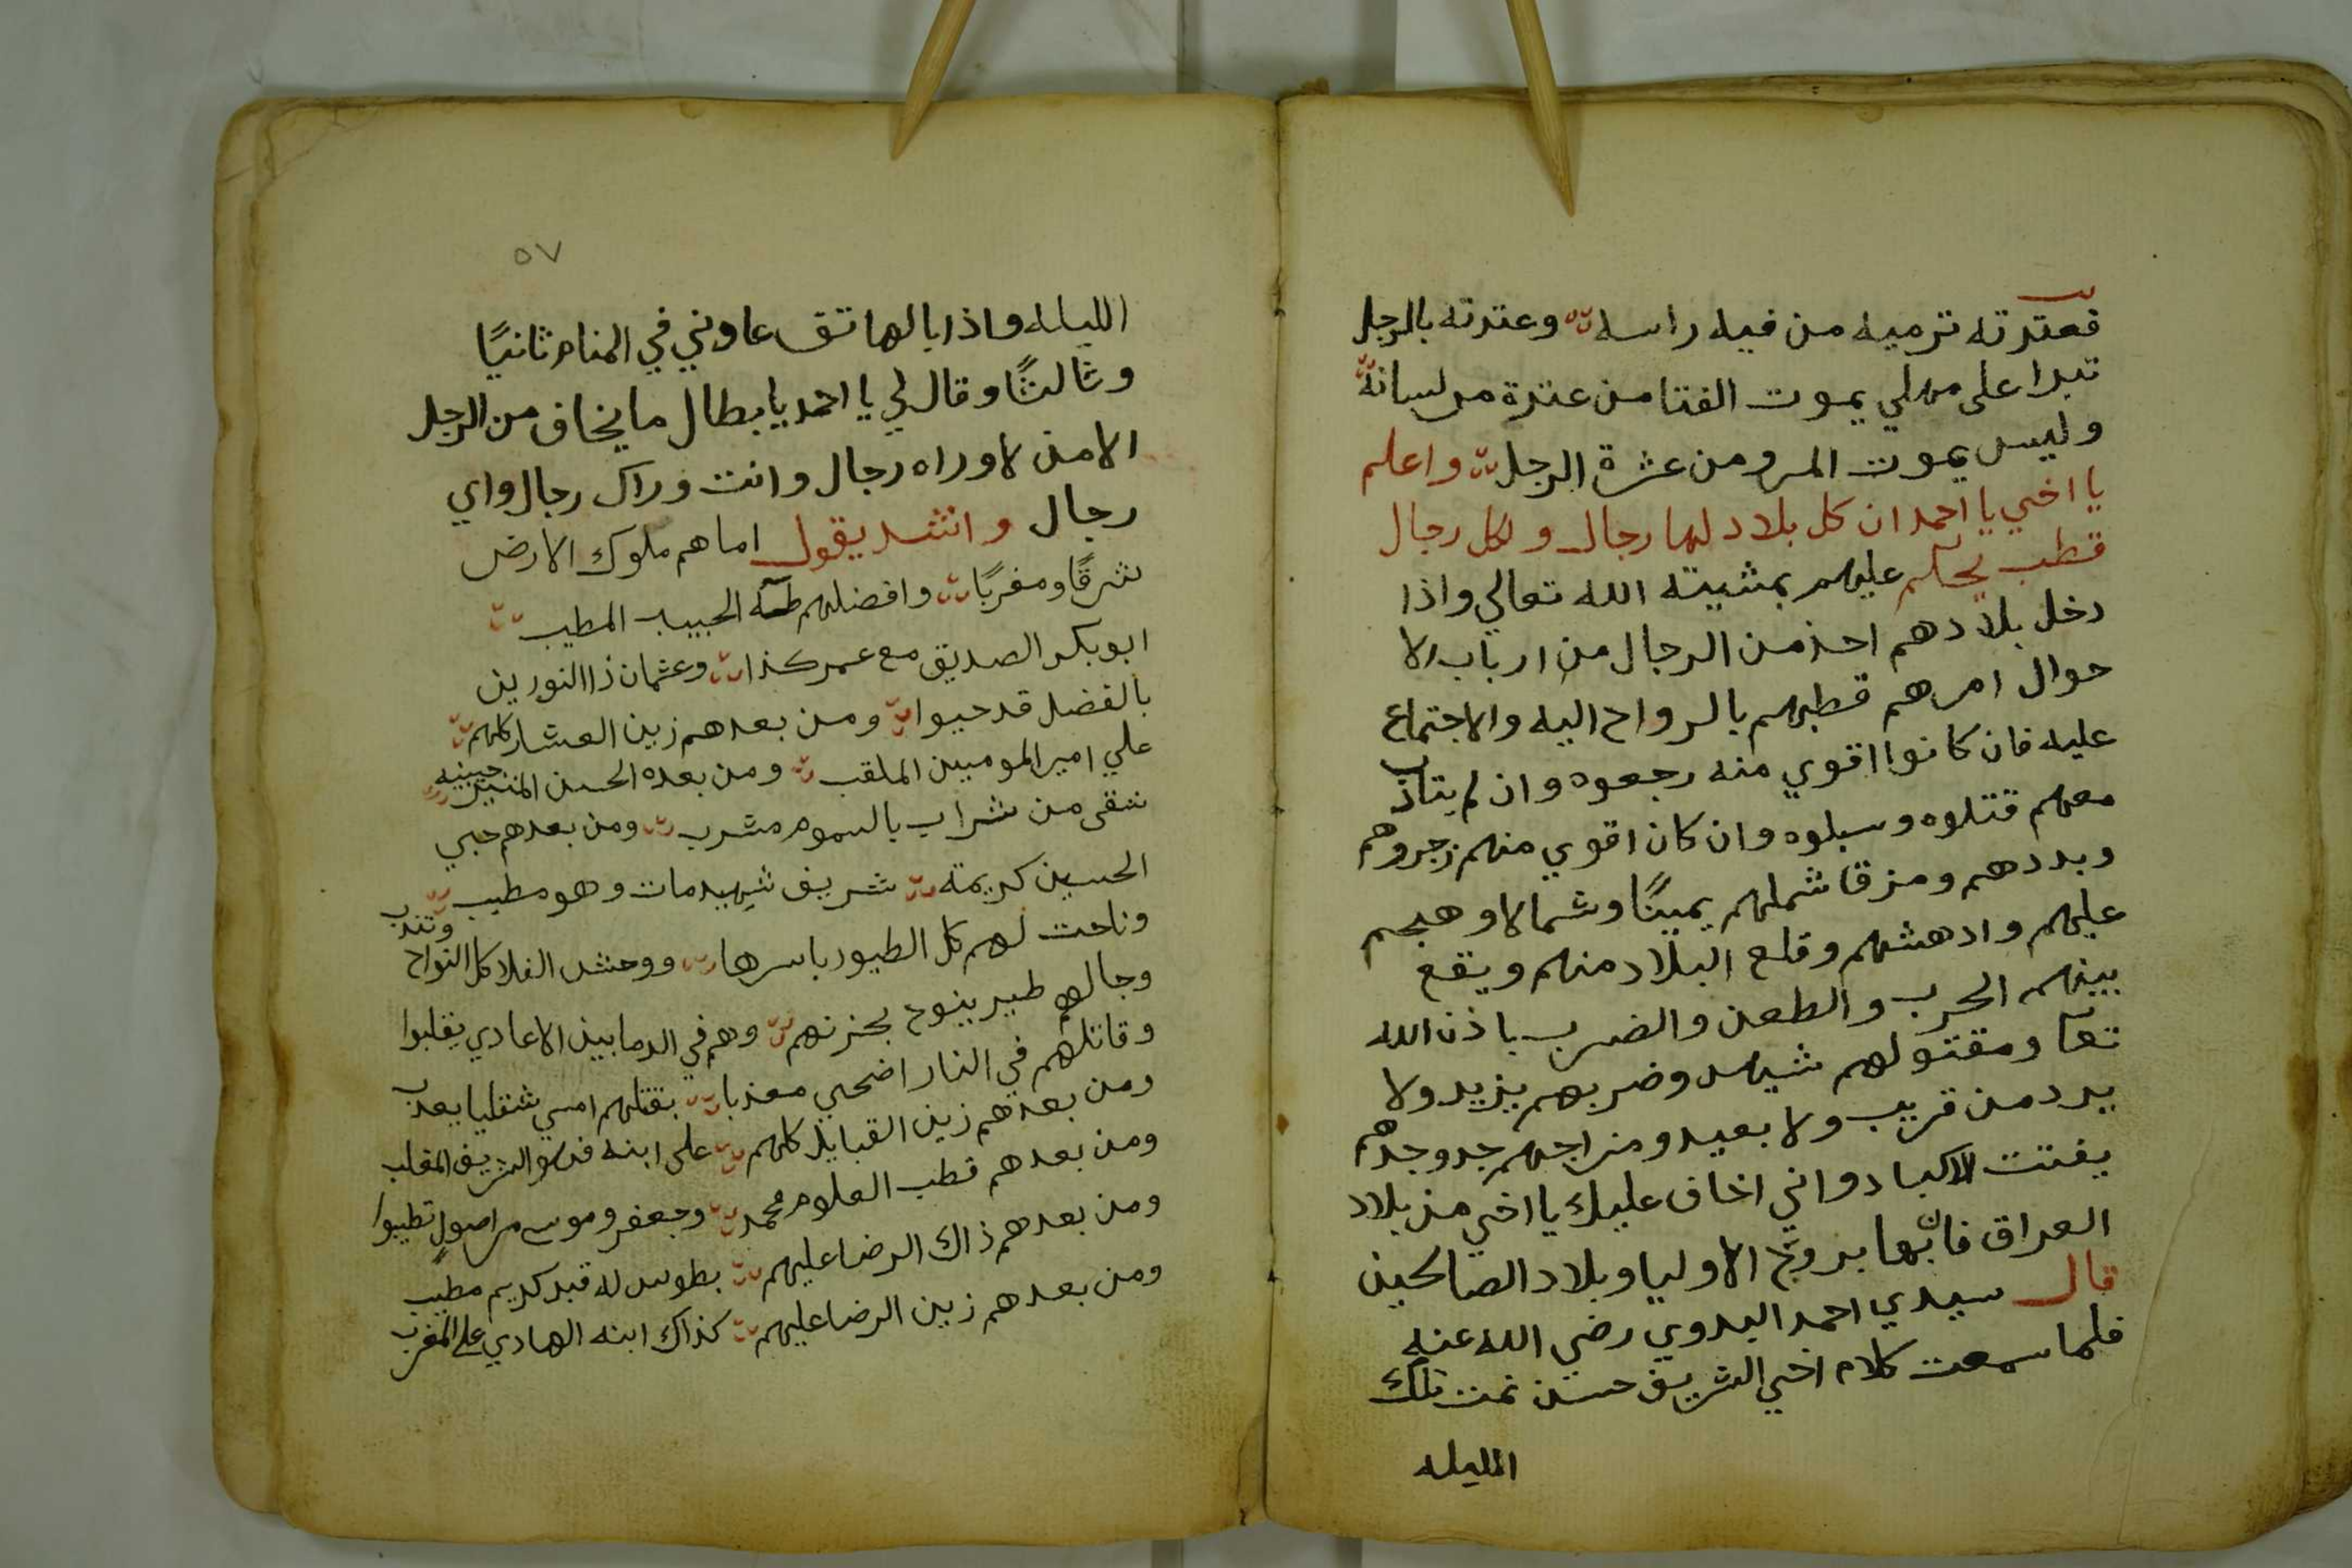 فعترته ترميه من فيه راسه وعترته بالرجل
تبرا على مهلي يموت الفتا من عترة من لسانه
وليس يموت المرو من عثرة الرجل واعلم
يا اخي يا احمد ان كل بلاد لها رجال ولكل رجال
قطب يحكم عليهم بمشيته الله تعالي واذا
دخل بلادهم احذ من الرجال من ارباب الا
حوال امرهم قطبهم بالرواح اليه والاجتماع
عليه فان كانوا اقوي منه رجعوه وان لم يتادب
معهم قتلوه وسبلوه وان كان اقوي منهم زجروهم
وبددهم ومزقا شملهم يمينًا وشمالا وهجم
عليهم وادهشهم وقلع البلاد منهم ويقع
بينهم الحرب والطعن والضرب باذن الله
تعا ومقتولهم شهيد وضربهم يزيد ولا
يرد من قريب ولا بعيد ومزاجهم جد وجدهم
يفتت الاكباد واني اخاف عليك يا اخي من بلاد
العراق فانها بروج الاوليا وبلاد الصالحين
قال سيدي احمد البدوي رضي الله عنه
فلما سمعت كلام اخي الشريف حسن نمت تلك
الليله
٥٧
الليله واذا بالهاتف عاوني في المنام ثانيًا
وثالثًا وقال لي يا احمد يا بطال ما يخاف من الرجل
الا من لا وراه رجال وانت وراك رجال واي
رجال وانشد يقول اما هم ملوك الارض
شرقًا ومغربًا وافضلهم طه الحبيب المطيب
ابو بكر الصديق مع عمر كذا وعثمان ذا النورين
بالفضل قد حيوا ومن بعدهم زين العشار كلهم
علي امير المومبين الملقب ومن بعده الحسن المنير جبينه
شقى من شراب بالسموم مشرب ومن بعدهم حبي
الحسين كريمة شريف شهيد مات وهو مطيب
وناحت لهم كل الطيور باسرها ووحش الفلا كل النواح وتندب
وجا لهم طير ينوح بحزنهم وهم في الدما بين الاعادي يقلبوا
وقاتلهم في النار اضحي معذبا بقتلهم امسي شقيا يعذب
ومن بعدهم زين القبايل كلهم على ابنه فهو الشريف المقلب
ومن بعدهم قطب العلوم محمد وجعفر وموسى من اصول تطيبوا
ومن بعدهم ذاك الرضا عليهم بطوس له قبر كريم مطيب
ومن بعدهم زين الرضا عليهم كذاك ابنه الهادي على المغرب